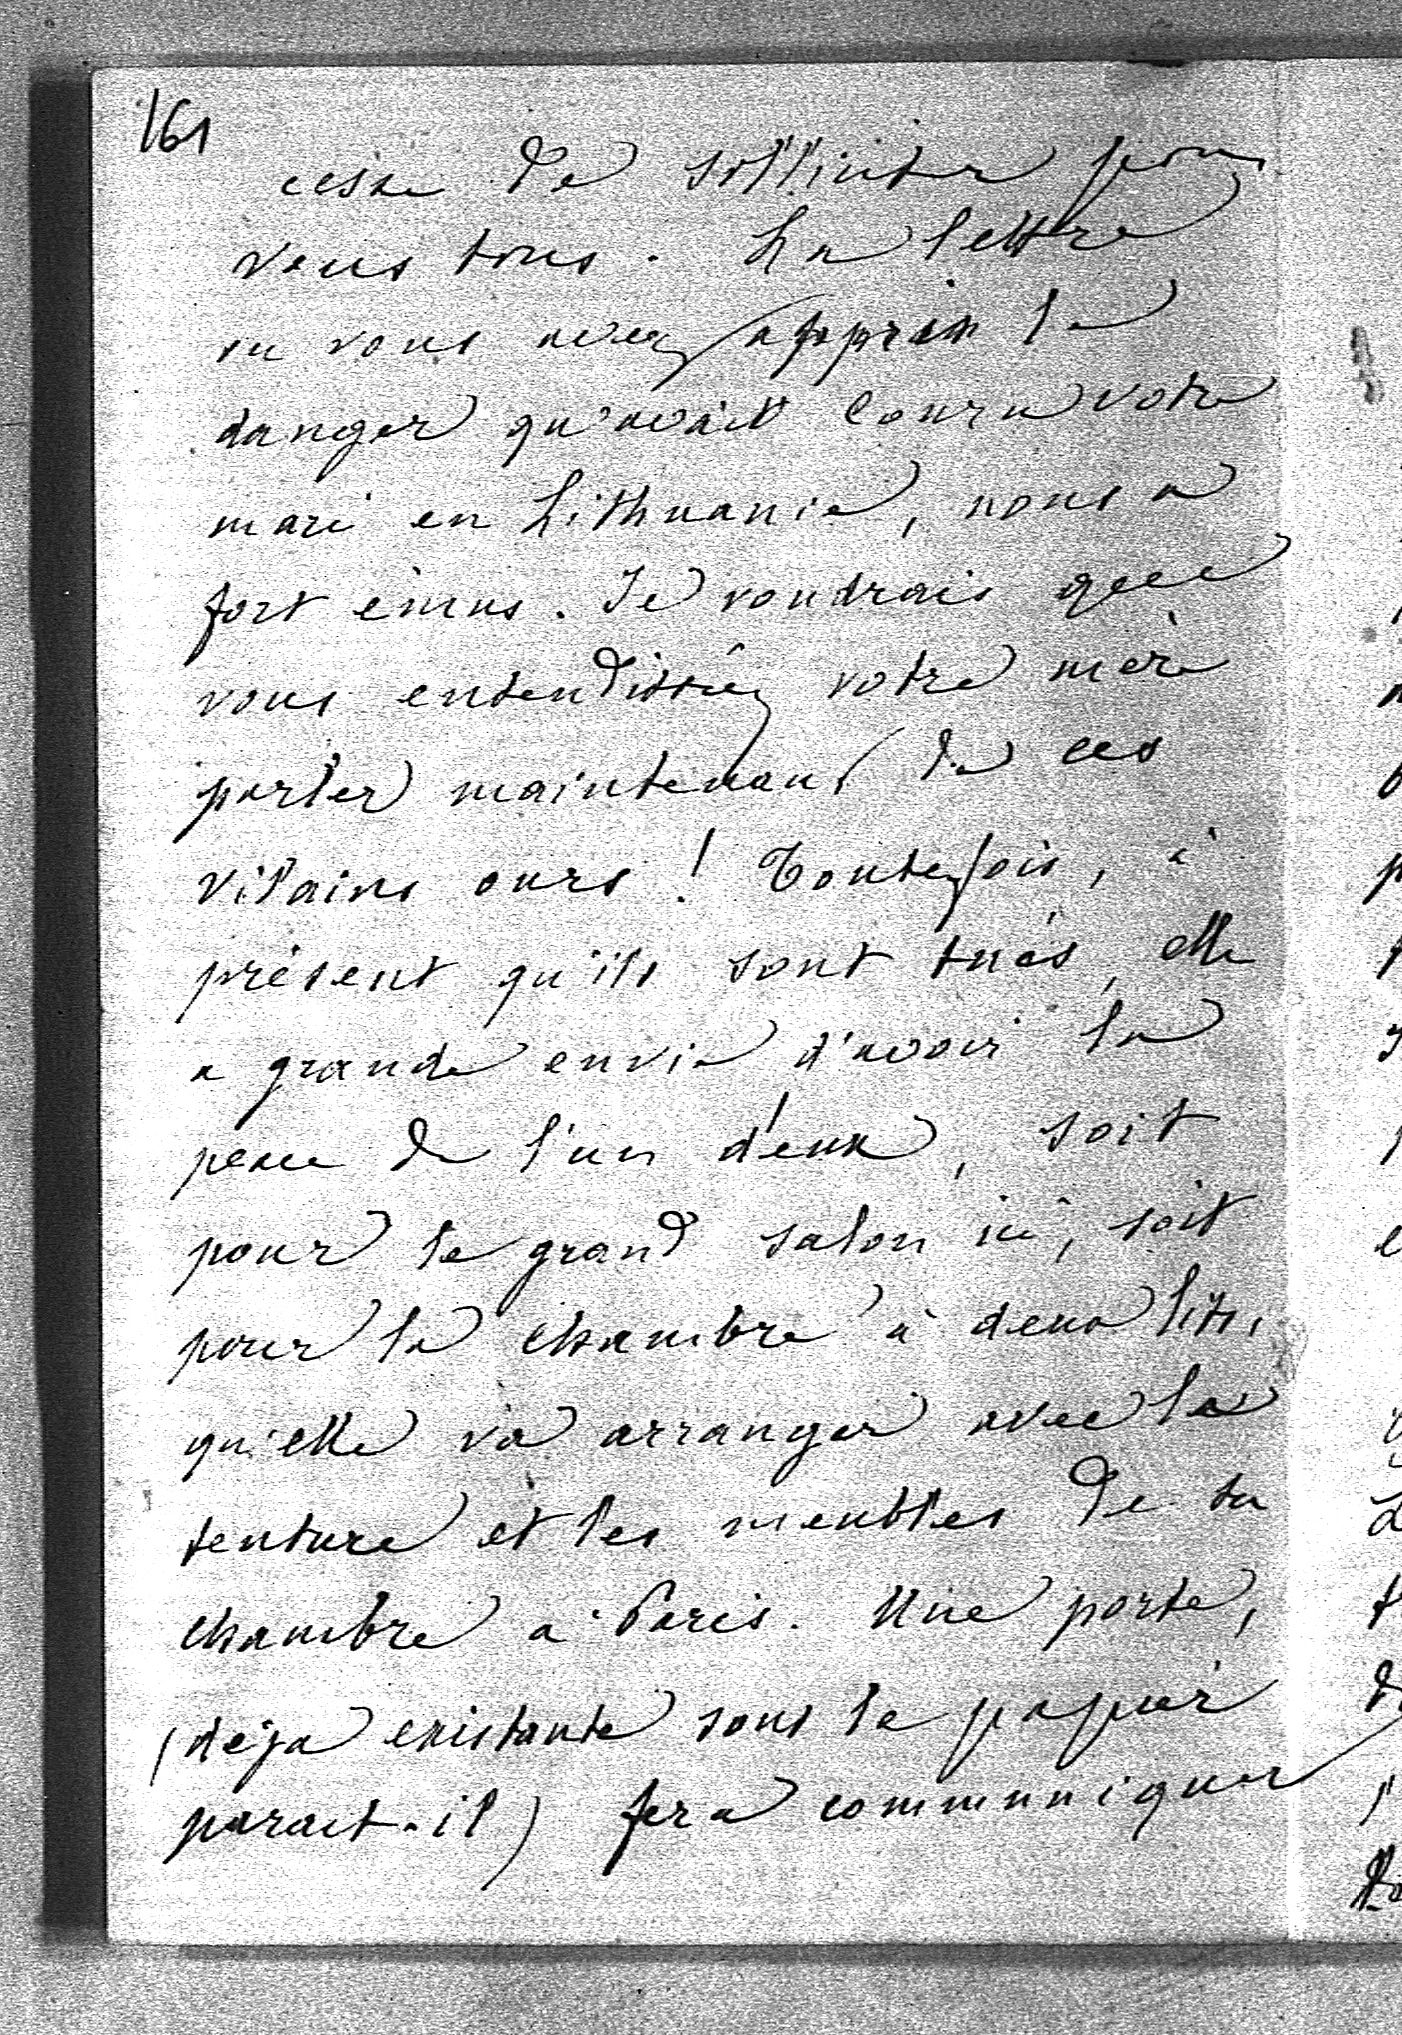 161
cesse de solliciter pour
vous tous. La lettre
ou vous avez appris le
danger qu'avait couru votre
mari en Lithuanie, nous a
fort émus. Je voudrais que
vous entendissiez votre mère
parler maintenant de ces
vilains ours! Toutefois, à
présent qu'ils sont tués, elle
a grande envie d'avoir la
peau de l'un d'eux, soit
pour le grand salon ici, soit
pour la chambre à deux lits,
qu'elle va arranger avec la
tenture et les meubles de sa
chambre à Paris. Une porte,
(déja existante sous le papier
parait-il) fera communiquer